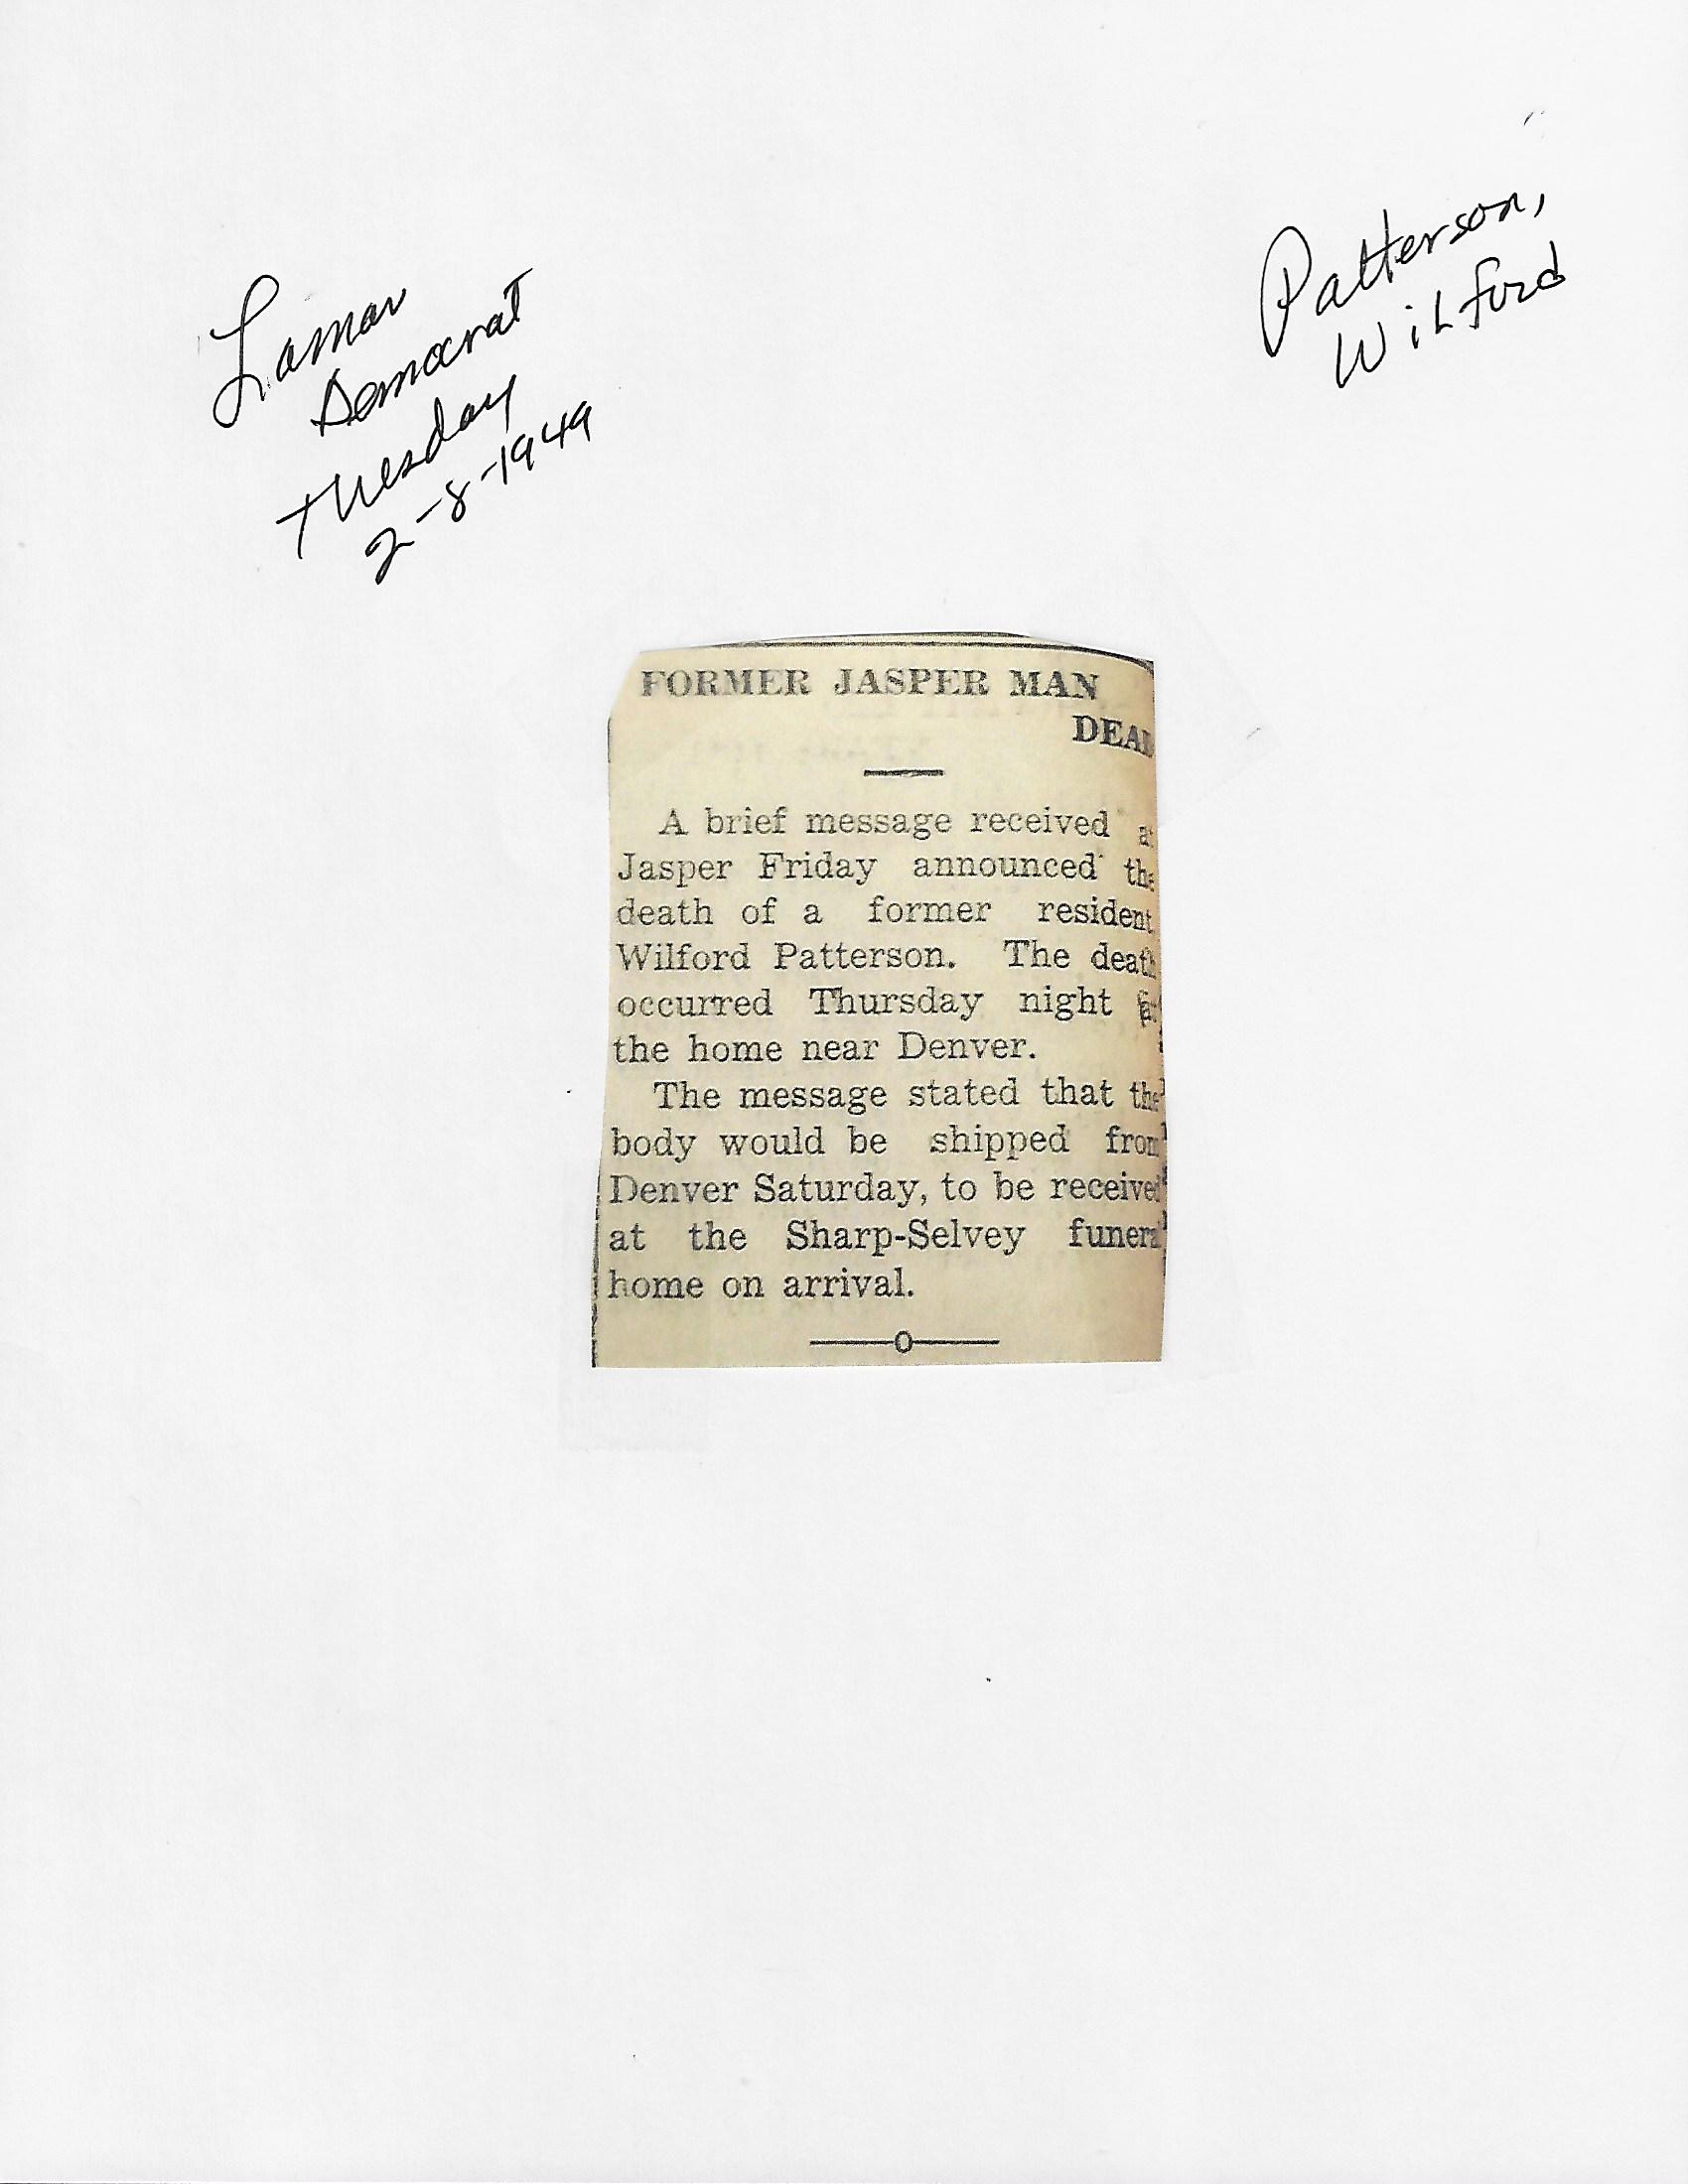 Patterson,
Wilford
Lamar
Democrat
Tuesday
2-8-1949
FORMER JASPER MAN
DEAD
A brief message received at
Jasper Friday announced the
death of a former resident,
Wilford Patterson. The death
occurred Thursday night at
the home near Denver.
The message stated that the
body would be shipped from
Denver Saturday, to be received
at the Sharp-Selvey funeral
home on arrival.